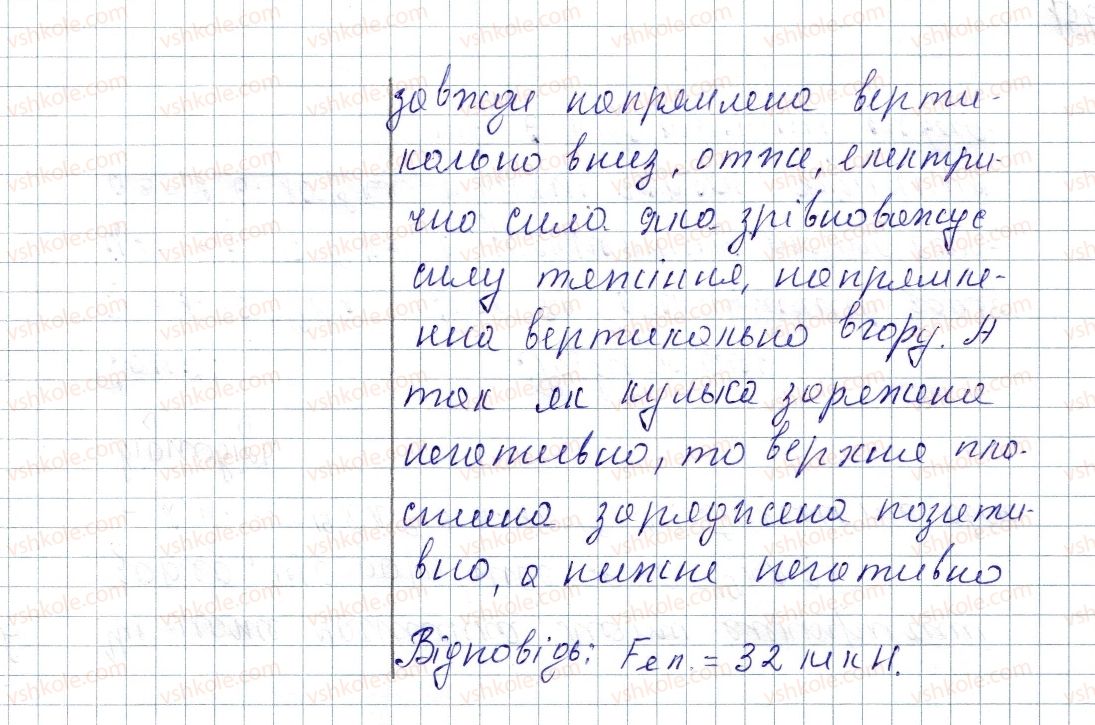 завжди напрямлена верти-
кально вниз, отже, електри-
чна сила яка зрівноважує
силу тяжіння, напрямле-
нна вертикально вгору. А
так як кулька заряжена
негативно, то верхня пла-
стина заряджена позити-
вно, а нижнє негативно
Відповідь: Fел. = 32 мкН.
vshkole.com